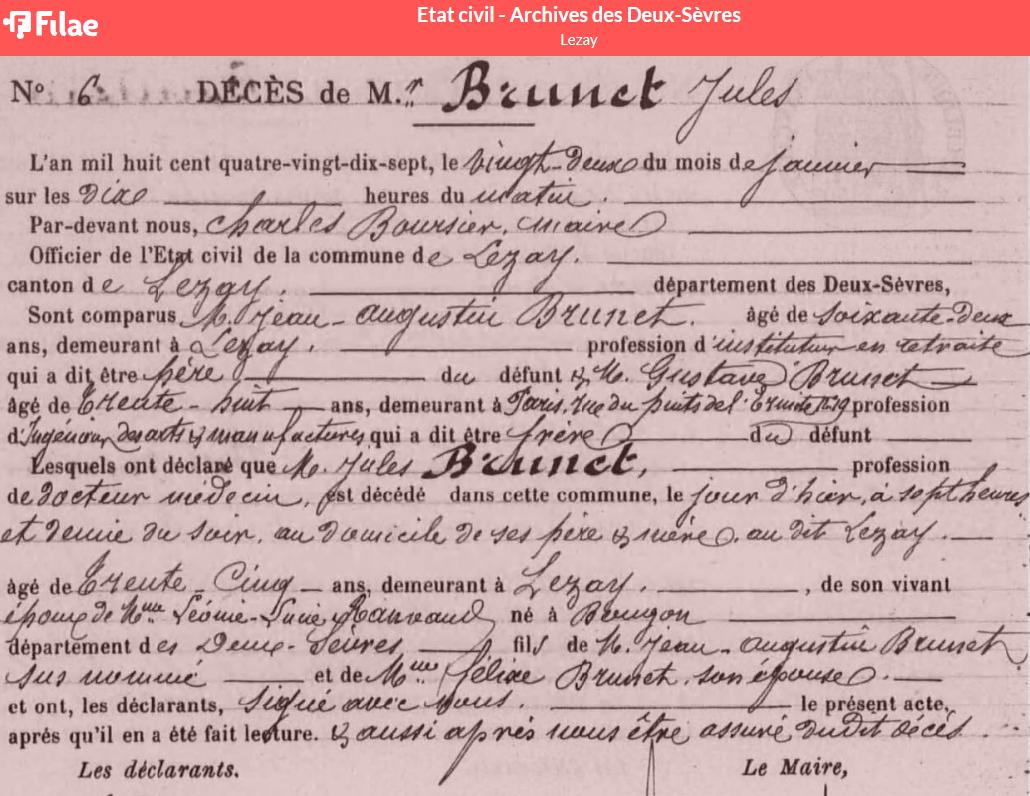 Filae
Etat civil - Archives des Deux-Sèvres
Lezay
N° 6 DÉCÈS de M.r Brunet Jules
L'an mil huit cent quatre-vingt-dix-sept, le vingt-deux du mois de janvier
sur les dix heures du matin.
Par-devant nous, Charles Boursier, maire
Officier de l'Etat civil de la commune de Lezay.
canton de Lezay. département des Deux-Sèvres,
Sont comparus M. Jean-augustin Brunet. âgé de soixante-deux
ans, demeurant à Lezay. profession d'instituteur en retraite
qui a dit être père du défunt & M. Gustave Brunet
âgé de trente-huit ans, demeurant à Paris, rue du puits de l'Ermite N. 19 profession
d'Ingénieur des arts & manufactures qui a dit être frère du défunt
Lesquels ont déclaré que M. Jules Brunet, profession
de docteur médecin, est décédé dans cette commune, le jour d'hier, à sept heures
et demie du soir, au domicile de ses père & mère, au dit Lezay.
âgé de trente-cinq ans, demeurant à Lezay. , de son vivant
époux de Mme Léonie-Lucie né à Bougon
département des Deux-Sèvres fils de M. Jean-augustin Brunet
sus nommé et de Mme Brunet, son épouse.
et ont, les déclarants, signé avec nous. le présent acte,
après qu'il en a été fait lecture. & aussi après nous être assuré du dit décès.
Les déclarants. Le Maire,